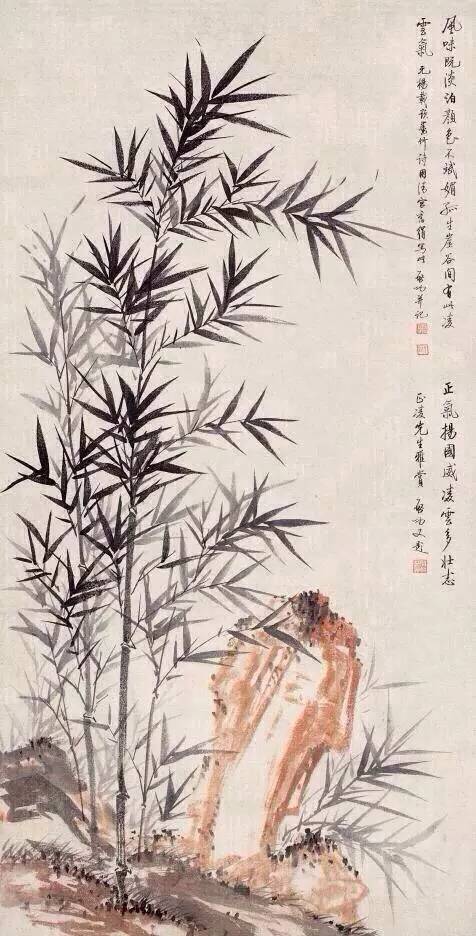 風味既淡泊顏色不斌媚孤生崖谷間有此凌
雲氣 元楊載題墨竹詩用清宮舊絹寫此 启功并記
正氣揚國威凌雲多壯志
正凌先生雅賞 启功又題